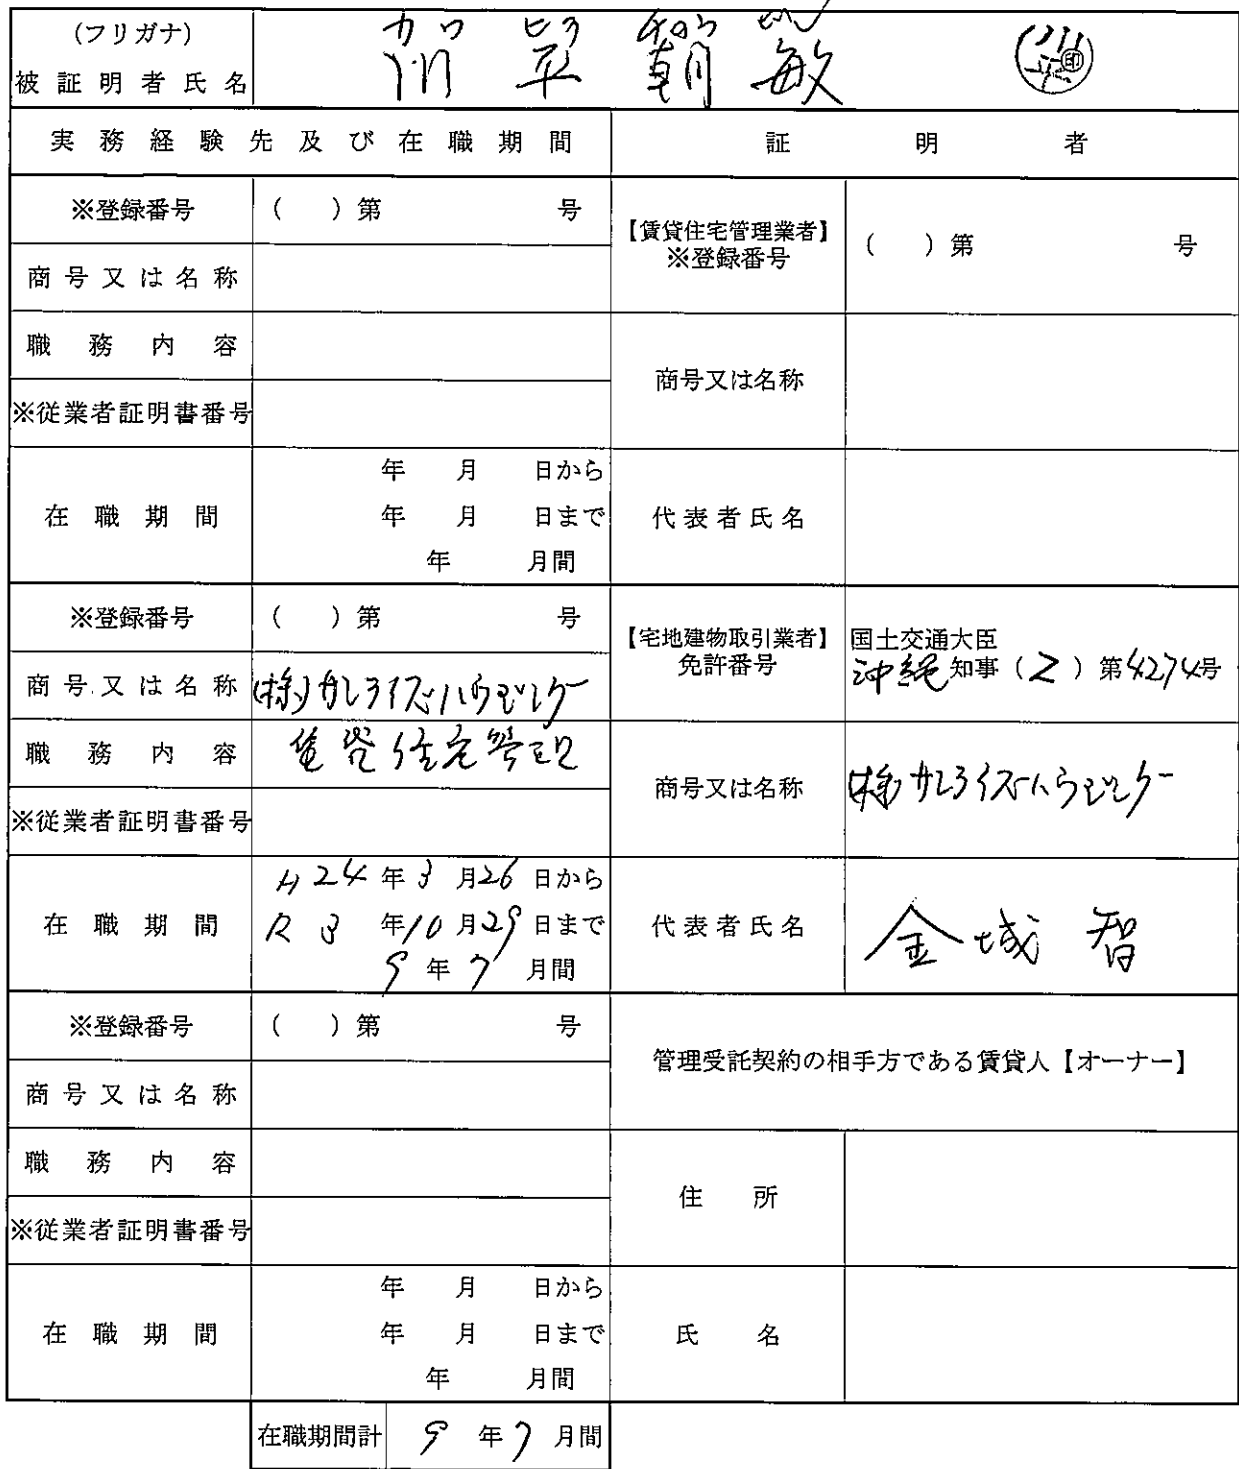 (フリガナ)
被証明者氏名 川平朝敏 印
実務経験先及び在職期間 証明者
※登録番号 ( )第 号 【賃貸住宅管理業者】 ※登録番号 ( )第 号
商号又は名称
職務内容 商号又は名称
※従業者証明書番号
在職期間 年 月 日から 代表者氏名
年 月 日まで
年 月間
※登録番号 ( )第 号 【宅地建物取引業者】 免許番号 国土交通大臣
沖縄知事(2)第4274号
商号又は名称 (株)サンライズハウジング
職務内容 賃貸住宅管理 商号又は名称 (株)サンライズハウジング
※従業者証明書番号
在職期間 H24年3月26日から 代表者氏名 金城 智
R3年10月29日まで
9年7月間
※登録番号 ( )第 号 管理受託契約の相手方である賃貸人【オーナー】
商号又は名称
職務内容 住所
※従業者証明書番号
在職期間 年 月 日から 氏名
年 月 日まで
年 月間
在職期間計 9年7月間